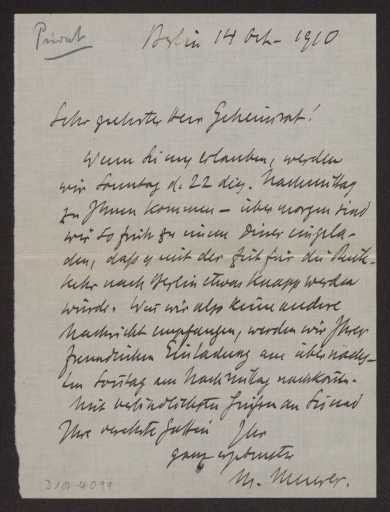 Privat
Berlin 14 Oct. 1910
Sehr geehrter Herr Geheimrat!
Wenn Sie uns erlauben, werden
wir Sonntag d. 22 dies. Nachmittag
zu Ihnen kommen – übermorgen sind
wir so früh zu einem Diner eingela-
den, daß es mit der Zeit für die Rück-
kehr nach Berlin etwas knapp werden
würde. Wenn wir also keine andere
Nachricht empfangen, werden wir Ihrer
freundlichen Einladung am übernächs-
ten Sonntag am Nachmittag nachkom-
Mit verbindlichsten Grüßen an Sie und
Ihre verehrte Gattin Ihr
ganz ergebenster
M.